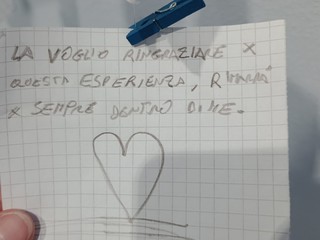 LA VOGLIO RINGRAZIARE X
QUESTA ESPERIENZA, RIMARRÀ
X SEMPRE DENTRO DI ME.